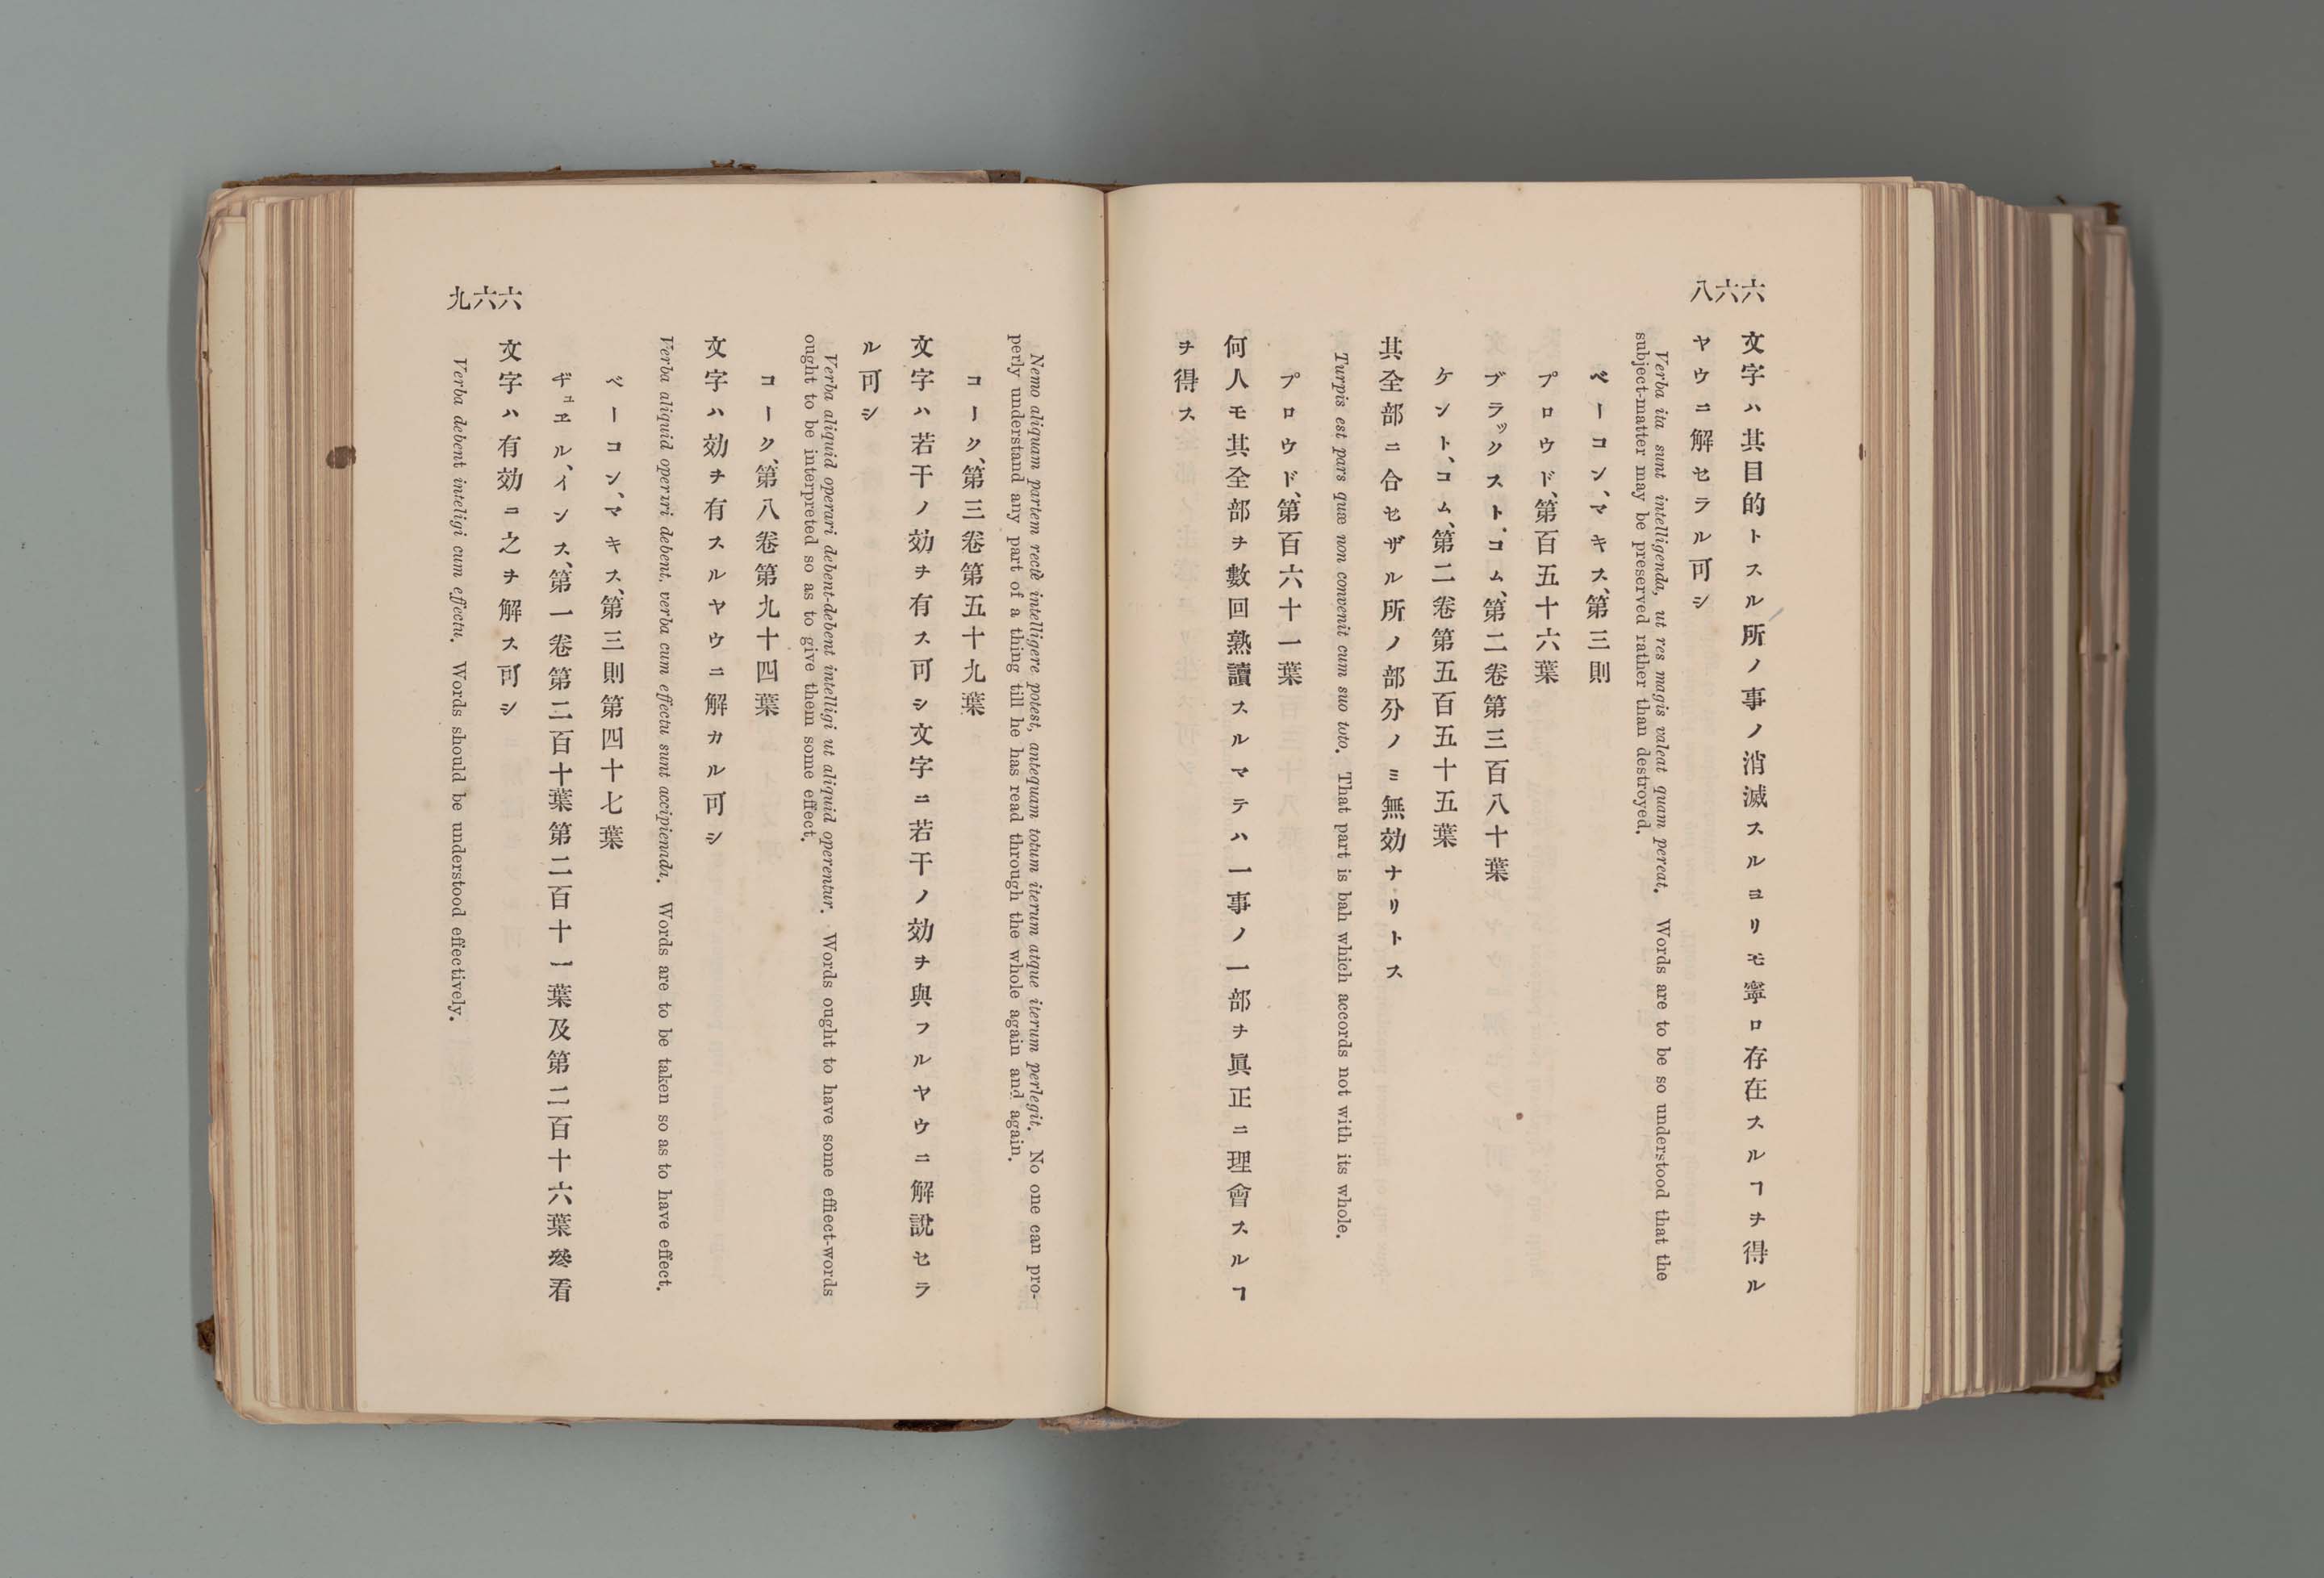 六六八
文字ハ其目的トスル所ノ事ノ消滅スルヨリモ寧ロ存在スルヿヲ得ル
ヤウニ解セラル可シ
Verba ita sunt intelligenda, ut res magis valeat quam pereat. Words are to be so understood that the
subject-matter may be preserved rather than destroyed.
ベーコン、マキス、第三則
プロウド、第百五十六葉
ブラックスト、コム、第二卷第三百八十葉
ケント、コム、第二卷第五百五十五葉
其全部ニ合セザル所ノ部分ノミ無効ナリトス
Turpis est pars quæ non convenit cum suo toto. That part is bah which accords not with its whole.
プロウド、第百六十一葉
何人モ其全部ヲ數回熟讀スルマテハ一事ノ一部ヲ眞正ニ理會スルヿ
ヲ得ス
Nemo aliquam partem rectè intelligere potest, antequam totum iterum atque iterum perlegit. No one can pro-
perly understand any part of a thing till he has read through the whole again and again.
コーク、第三卷第五十九葉
文字ハ若干ノ効ヲ有ス可シ文字ニ若干ノ効ヲ與フルヤウニ解說セラ
ル可シ
Verba aliquid operari debent-debent intelligi ut aliquid operentur. Words ought to have some effiect-words
ought to be interpreted so as to give them some effect.
コーク、第八卷第九十四葉
文字ハ効ヲ有スルヤウニ解カル可シ
Verba aliquid operiri debent, verba cum effectu sunt accipienada. Words are to be taken so as to have effect.
ベーコン、マキス、第三則第四十七葉
ギュエル、インス、第一卷第二百十葉第二百十一葉及第二百十六葉參看
文字ハ有効ニ之ヲ解ス可シ
Verba debent inteligi cum effectu. Words should be understood effectively.
六六九